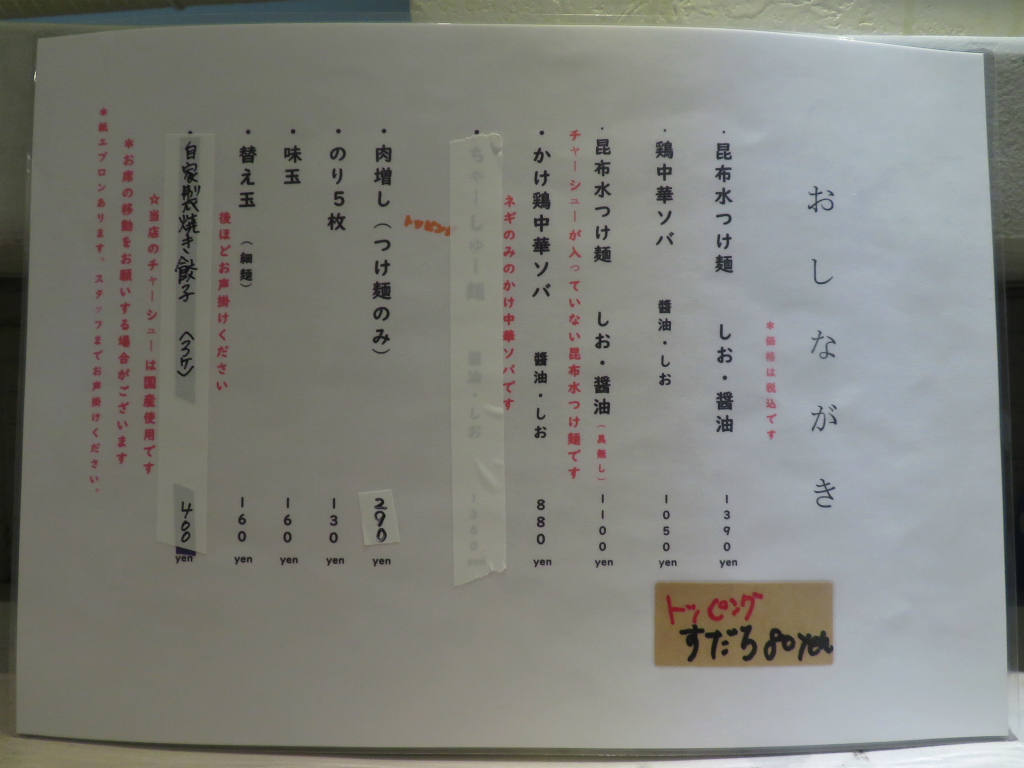 おしながき
＊価格は税込です
・昆布水つけ麺 しお・醤油 1390 yen
・鶏中華ソバ 醤油・しお 1050 yen
・昆布水つけ麺 しお・醤油（具無し） 1100 yen
チャーシューが入っていない昆布水つけ麺です
・かけ鶏中華ソバ 醤油・しお 880 yen
ネギのみのかけ中華ソバです
・ちゃーしゅー麺 醤油・しお 1360 yen
トッピング
・肉増し（つけ麺のみ） 290 yen
・のり5枚 130 yen
・味玉 160 yen
・替え玉（細麺） 160 yen
後ほどお声掛けください
・自家製焼き餃子〈5ケ〉 400 yen
☆当店のチャーシューは国産使用です
＊お席の移動をお願いする場合がございます
＊紙エプロンあります。スタッフまでお声掛けください。
トッピング
すだち 80yen